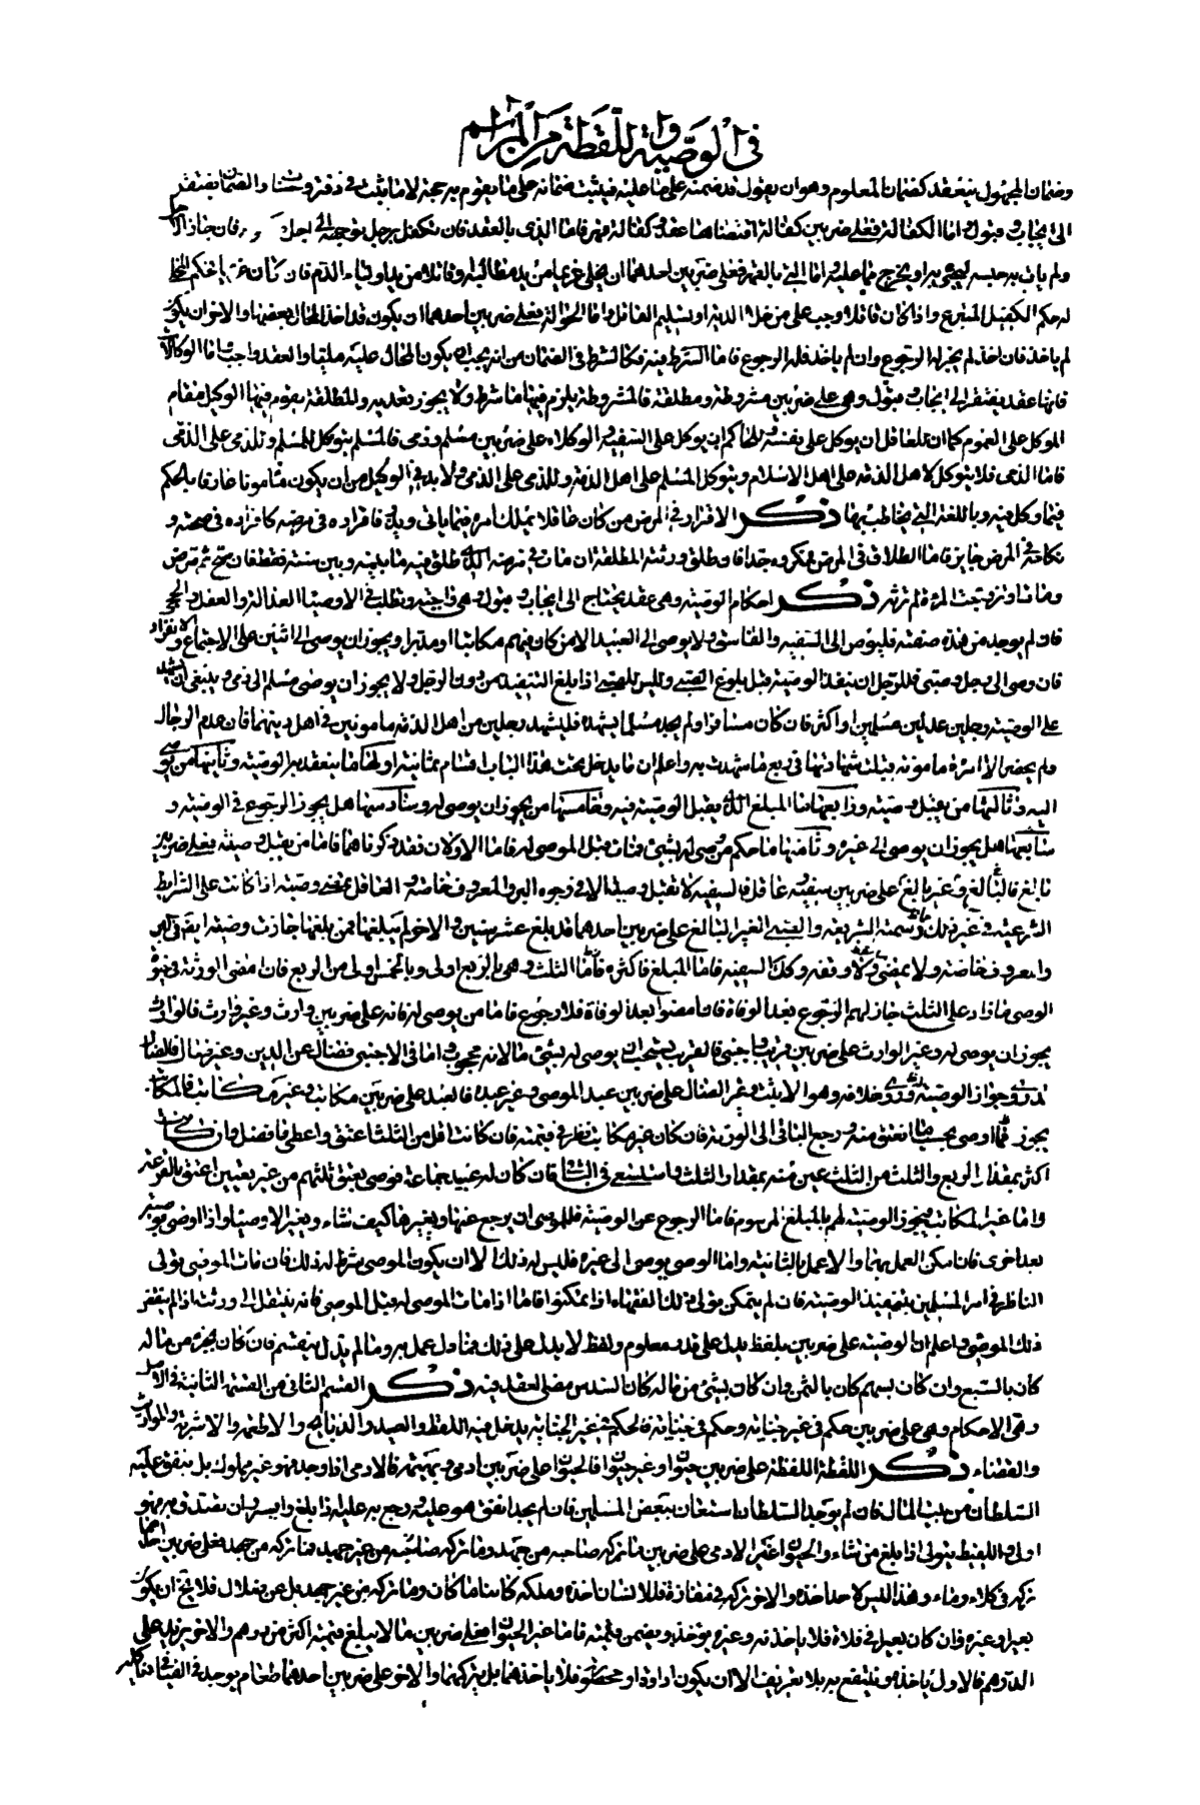 في الوصية واللقطة من المراسم
وضمان المجهول ينعقد كضمان المعلوم وهو ان يقول قد ضمنت على ما عليه فيثبت ضمانه على ما يقوم به حجة لا ما يثبت في دفتر و والضمان يفتقر
الى ايجاب وقبول اما الكفالة فعلى ضربين كفالة اقتضاها عقد وكفالة قهر فاما الذي بالعقد فان يتكفل برجل بوجهه الى اجل فان جاز الاجل
ولم يات به حبسه ليجيء به او يخرج مما عليه واما التي بالقهر فعلى ضربين احدهما ان يخلى غريما من يد مطالبه وقاتلا من يد اولياء الدم فان كان غريما حكم
له حكم الكفيل المتبرع واذا كان قاتلا وجب على من خلاه الدية او يسلم القاتل واما الحوالة فعلى ضربين احدهما ان يكون قد اخذ المحال بعضها والاخر ان يكون
لم ياخذ فان اخذ لم يجز له الرجوع وان لم ياخذ فله الرجوع فاما الشرط فيه فكالشرط في الضمان من انه يجب ان يكون المحال عليه مليا والعقد واجب اما الوكالة
فانها عقد يفتقر الى ايجاب وقبول وهي على ضربين مشروطة ومطلقة فالمشروطة يلزم فيها ما شرط ولا يجوز تعديه والمطلقة يقوم فيها الوكيل مقام
الموكل على العموم كما ان للعاقل ان يوكل على نفسه وللحاكم ان يوكل على السفيه والوكلاء على ضربين مسلم وذمي فالمسلم يتوكل للمسلم وللذمي على الذمي
فاما الذمي فلا يتوكل لاهل الذمة على اهل الاسلام ويتوكل المسلم على اهل الذمة وللذمي على الذمي ولا بد في الوكيل من ان يكون مامونا عارفا بالحكم
فيما وكل فيه وباللغة التي يخاطب بها ذكر الاقرار في المرض من كان عاقلا يملك امره فيما ياتي ويذر فاقراره في مرضه كاقراره في صحته و
نكاحه في المرض جايز فاما الطلاق في المرض فمكروه جدا فان طلق ورثته المطلقة ان مات في مرضه الذي طلق فيه ما بينه وبين سنة فقط فان صح ثم مرض
ومات او تزوجت المراة لم ترثه ذكر احكام الوصية وهي عقد يحتاج الى ايجاب وقبول وهي واجبة ويطلب في الاوصيا العدالة والعقل والحجى
فان لم يوجد من هذه صفته فليوص الى السفيه والفاسق ولا يوصى الى العبيد الا من كان فيهم مكاتبا او مدبرا ويجوز ان يوصى الى اثنين على الاجتماع والانفراد
فان وصى الى رجل وصبي فللرجل ان ينفذ الوصية قبل بلوغ الصبي وليس للصبي اذا بلغ التنفيذ من دون الرجل ولا يجوز ان يوصى مسلم الى ذمي وينبغي ان يشهد
على الوصية رجلين عدلين مسلمين او اكثر فان كان مسافرا ولم يجد مسلما يشهده فليشهد رجلين من اهل الذمة مامونين في اهل دينهما فان عدم الرجال
ولم يحضر الا امراة مامونة قبلت شهادتها في ربع ما شهدت به واعلم ان ما يدخل تحت هذا الباب اقسام ثمانية اولها ما ينعقد به الوصية وثانيها من يوصي
اليه وثالثها من يقبل وصيته ورابعها ما المبلغ الذي يقبل الوصية فيه وخامسها من يجوز ان يوصى له وسادسها هل يجوز الرجوع في الوصية و
سابعها هل يجوز ان يوصى الى غيره وثامنها ما حكم من وصى له بشيء فمات قبل الموصى له فاما الاولان فقد ذكرناهما فاما من يقبل وصيته فعلى ضربين
بالغ وغير بالغ فالبالغ على ضربين سفيه وعاقل فالسفيه لا تقبل وصيته الا في وجوه البر والمعروف خاصة والعاقل تمضى وصيته اذا كانت على الشرايط
الشرعية في غير ذلك والصبي الغير البالغ على ضربين احدهما قد بلغ عشر سنين والاخر لم يبلغها فمن بلغها جازت وصيته ايضا في البر
والمعروف خاصة ولا يمضى وقفه وكذلك السفيه فاما المبلغ فاكثره الثلث وهي بالربع اولى وبالخمس اولى من الربع فان امضى الورثة في حيوة
الموصى ما زاد على الثلث جاز لهم الرجوع بعد الوفاة فان امضوا بعد الوفاة فلا رجوع فاما من يوصى له فانه على ضربين وارث وغير وارث فالوارث
يجوز ان يوصى له وغير الوارث على ضربين قريب واجنبي فالقريب يستحب ان يوصى له بشيء ما لانه محجوب واما في الاجنبي فضال عن الدين وغير ضال فالضال
قد روي جواز الوصية له وروي خلافه وهو الاثبت وغير الضال على ضربين عبد الموصي وغير عبده فالعبد على ضربين مكاتب وغير مكاتب فالمكاتب
يجوز فيما اوصى بحساب ما انعتق منه ويرجع الباقي الى الورثة فان كان غير مكاتب نظر في قيمته فان كانت اقل من الثلث اعتق واعطي ما فضل وان كانت
اكثر بمقدار الربع والثلث من الثلث عتق منه بمقدار الثلث واستسعي في الباقي فان كان له عبيد جماعة فوصى بعتق ثلثهم من غير تعيين اعتق بالقرعة
واما غير المكاتب فيجوز الوصية لهم بالمبلغ المرسوم فاما الرجوع عن الوصية فللموصي ان يرجع عنها ويغيرها كيف شاء ويغير الاوصيا واذا اوصى بوصية
بعد اخرى فان امكن العمل بهما والا عمل بالثانية واما الوصي يوصى الى غيره فليس له ذلك الا ان يكون الموصي شرط له ذلك فان مات الوصي تولى
الناظر في امر المسلمين تنفيذ الوصية فان لم يتمكن تولى ذلك الفقهاء اذا تمكنوا فاما اذا مات الموصى له قبل الموصي فانه ينتقل الى ورثته اذا لم ينقض
ذلك الموصي واعلم ان الوصية على ضربين بلفظ يدل على قدر معلوم ولفظ لا يدل على ذلك فما دل عمل به وما لم يدل ينقسم فان كان بجزء من ماله
كان بالسبع وان كان بسهم كان بالثمن وان كان بشيء من ماله كان السدس مضى العقد فيه ذكر القسم الثاني من القسمة الثانية في الاصل
وهي الاحكام وهي على ضربين حكم في غير جناية وحكم في جناية فالحكم في غير الجناية يدخل فيه اللقط والصيد والذبايح والاطعمة والاشربة والمواريث
والقضاء ذكر اللقطة اللقطة على ضربين حيوان وغير حيوان فالحيوان على ضربين ادمي وبهيمة فالادمي اذا وجد فهو غير مملوك بل ينفق عليه
السلطان من بيت المال فان لم يوجد السلطان استعان ببعض المسلمين فان لم يجد انفق هو عليه ورجع به عليه اذا بلغ وايسر وان تصدق به فهو
اولى واللقيط يتولى اذا بلغ من شاء والحيوان غير الادمي على ضربين ما تركه صاحبه من جهد وما تركه صاحبه من غير جهد فما تركه من جهد فعلى ضربين احدهما
تركه في كلاء وماء وهذا ليس لاحد اخذه والاخر تركه في مفازة فللانسان اخذه وملكه كائنا ما كان وما تركه من غير جهد بل عن ضلال فلا يخ ان يكون
بعيرا وغيره فان كان بعيرا في فلاة فلا ياخذنه وغيره يؤخذ ويضمن قيمته فاما غير الحيوان فعلى ضربين ما لا يبلغ قيمته اكثر من درهم والاخر يزيد على
الدرهم فالاول ياخذه وينتفع به بلا تعريف الا ان يكون اداوة او مخصرة فلا ياخذهما بل يتركهما والاخر على ضربين احدهما طعام يوجد في الفيافي فياكله